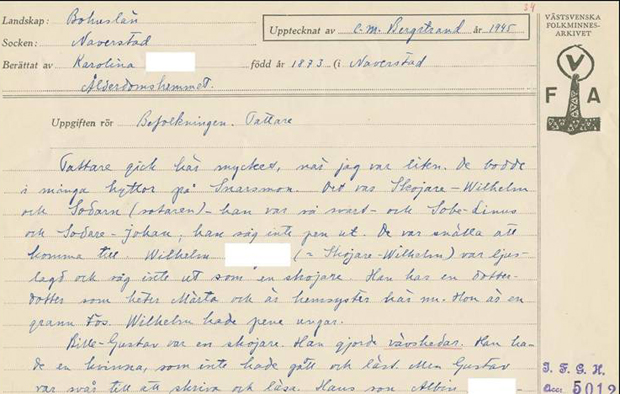 24
Landskap: Bohuslän
Upptecknat av C. M. Bergstrand år 1945
VÄSTSVENSKA
FOLKMINNES-
ARKIVET
Socken: Naverstad
Berättat av Karolina född år 1873 (i Naverstad
Ålderdomshemmet.
V
F A
Uppgiften rör Befolkningen. Tattare
Tattare gick här mycket, när jag var liten. De bodde
i många hyttor på Snarsmon. Det var Skojare-Wilhelm
och Sodarn (sotaren) - han var så svart - och Sobe-Linus
och Sodare-Johan, han såg inte pen ut. De var snälla att
komma till. Wilhelm (= Skojare-Wilhelm) var ljus-
lagd och såg inte ut som en skojare. Han har en dotter-
dotter som heter Märta och är hemsyster här nu. Hon är en
grann tös. Wilhelm hade pene ungar.
Bille-Gustav var en skojare. Han gjorde vävskedar. Han ha-
de en kvinna, som inte hade gått och läst. Men Gustav
var svår till att skriva och läsa. Hans son Albin
I. F. G. H.
Acc: 5012